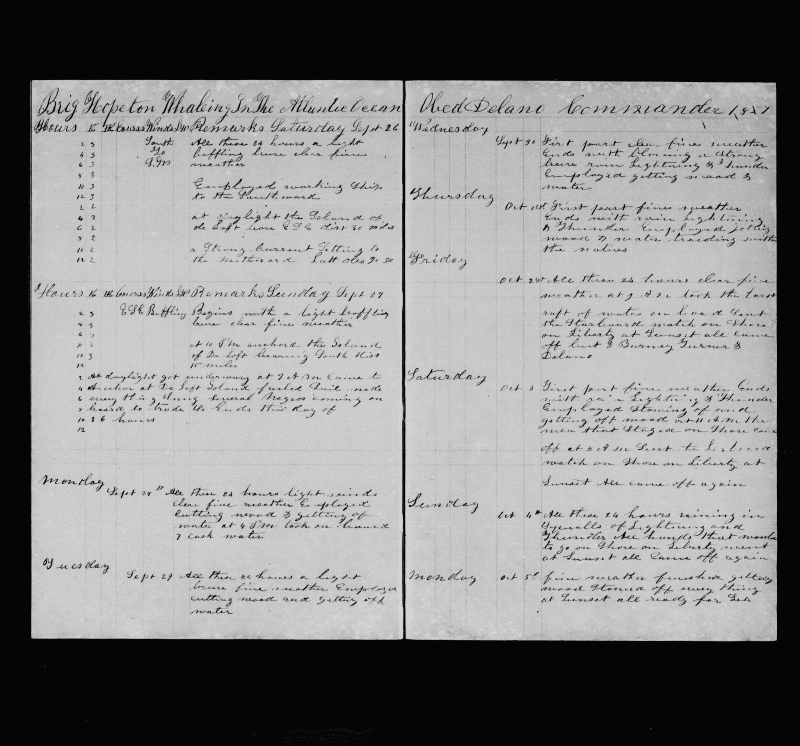 Brig Hopeton Whaleing In The Atlantic Ocean
Hours K H Courses Winds Remarks Saturday Sept 26
2 3 South All these 24 hours a light
4 3 To baffling breze clear fine
6 3 weather
8 3
10 3 Employed working Ship
12 3 to the Southward
2 2
4 2 at daylight the Island of
6 2 de Loft bore ESE dist 30 miles
8 2
10 2 a Strong Current Setting to
12 2 the northward Latt
Hours K H Courses Winds Remarks Sunday Sept 27
2 3 ESE Baffling Begins with a light baffling
4 3 breze clear fine weather
6 3
8 3 at 10 PM anchord the Island
10 3 of De Loft bearing South dist
12 15 miles
2 At daylight got underway at 9 AM Came to
4 Anchor at De Loft Island furled Sail made
6 every thing Snug Several Negros coming on
8 board to trade Us Ends this day of
10 36 hours
12
Monday
Sept 28th All these 24 hours light winds
clear fine weather Employed
Cutting wood & getting of
water at 4 PM took on board
7 cask water
Tuesday
Sept 29 All these 24 hours a light
breze fine weather Employed
cutting wood and getting off
water
Obed Delano Commander 1857
Wednesday
Sept 30 First part clear fine weather
Ends with blowing a Strong
breze rain Lightning & Thunder
Employed getting wood &
water
Thursday
Oct 1st First part fine weather
Ends with rain Lightning
& Thunder Employed getting
wood & water traiding with
the natives
Friday
Oct 2nd All these 24 hours clear fine
weather at 9 AM took the last
raft of water on board Sent
the Starboard watch on Shore
on Liberty at Sunset all came
off but 3 Burney Turner &
Delano
Saturday
Oct 3 First part fine weather Ends
with rain Lightning & Thunder
Employed Stowing of and
getting off wood at 11 A.M. the
men that Staged on Shore came
off at 3 P.M Sent to Larboard
watch on Shore on Liberty at
Sunset All came off again
Sunday
Oct 4th All these 24 hours raining in
Squalls of Lightning and
Thunder All hands that wanted
to go on Shore on Liberty went
at Sunset all Came off again
Monday
Oct 5th fine weather finished getting
wood Stowed off every thing
at Sunset all ready for Sea